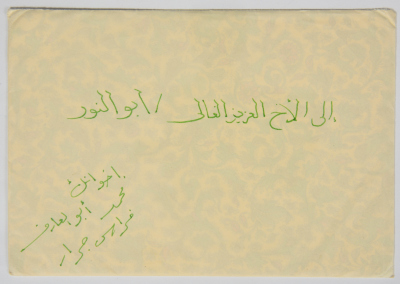 إلى الأخ العزيز الغالي / أبو النور
إخوانك
محمد أبو عارف
فراس جرار